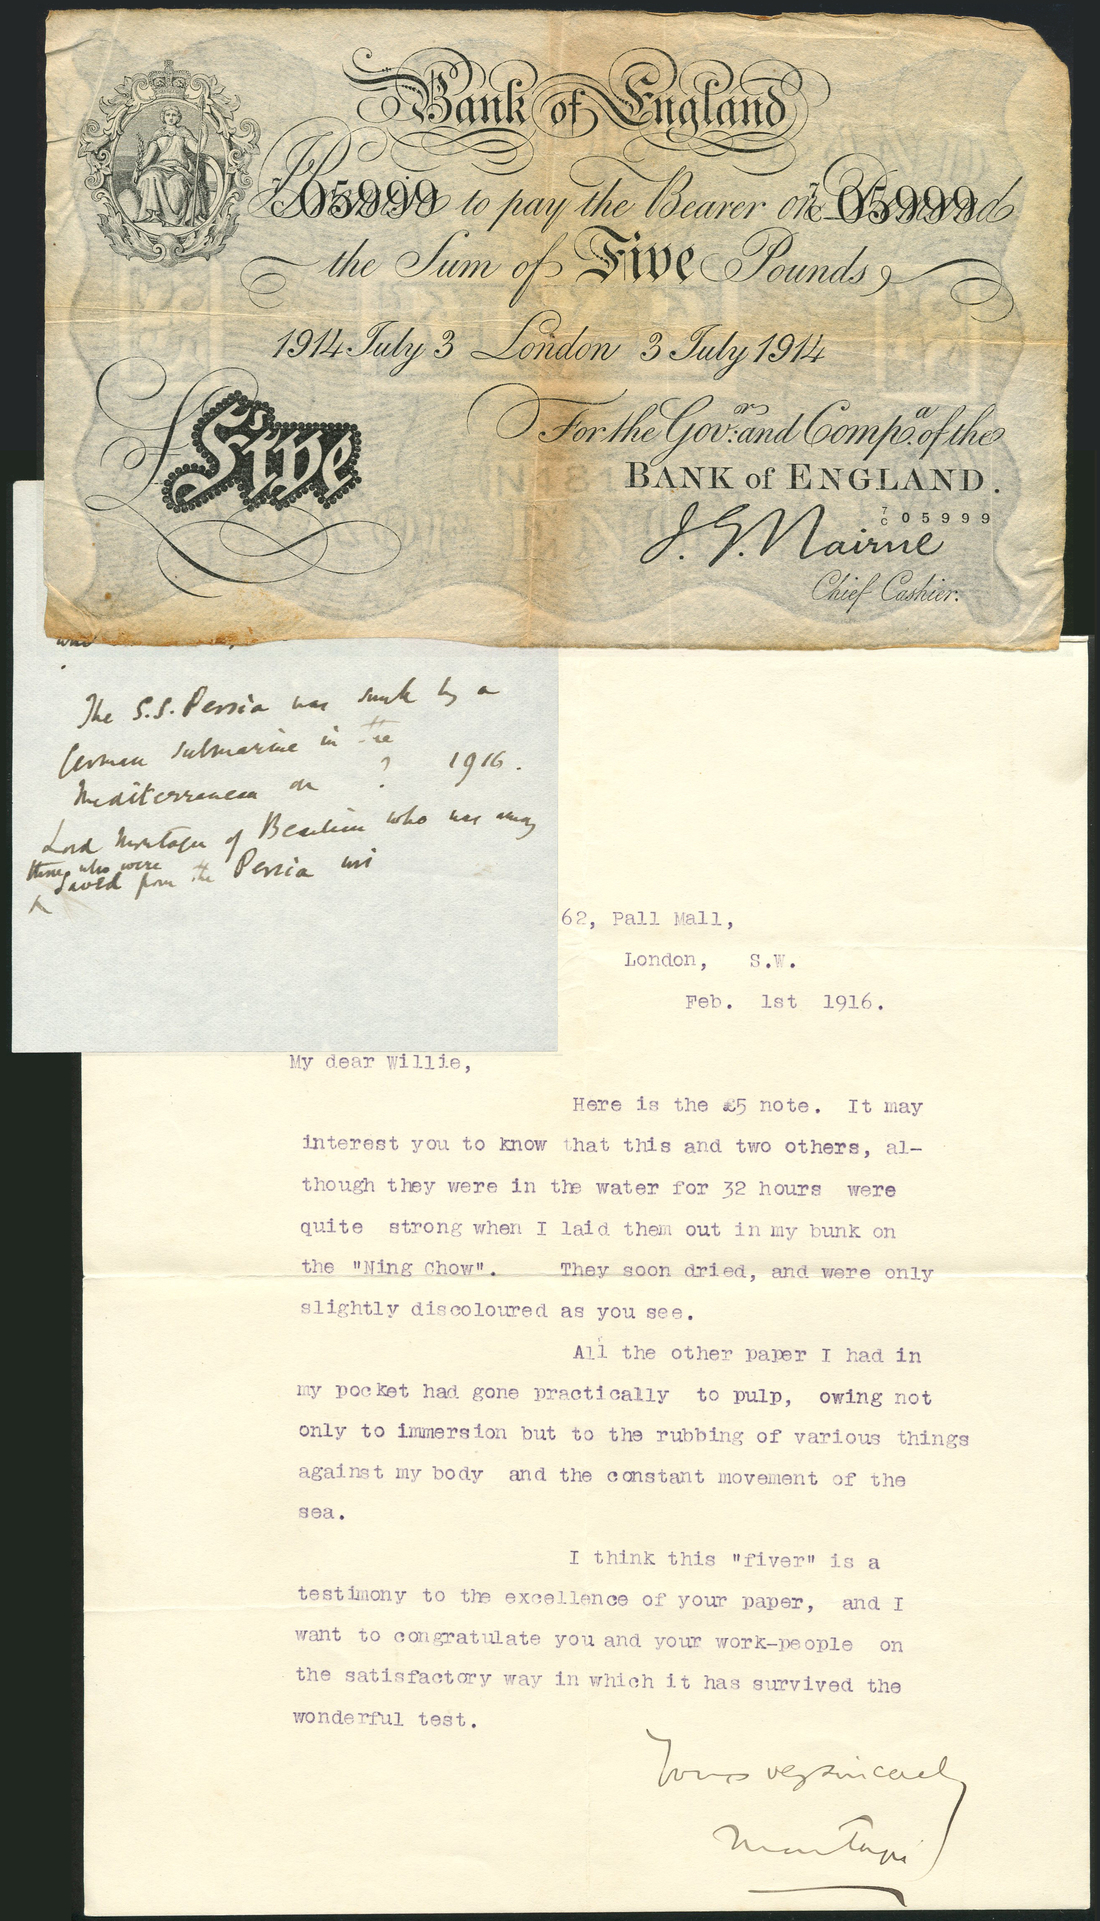 Bank of England
7/C 05999 to pay the Bearer on Demand 7/C 05999
the Sum of Five Pounds
1914 July 3 London 3 July 1914
£Five
For the Govr. and Compa. of the
BANK of ENGLAND.
7/C 05999
J. G. Nairne
Chief Cashier.
The S.S. Persia was sunk by a
German submarine in the
Mediterranean on ? 1916.
Lord Montagu of Beaulieu who was among
those who were
saved from the Persia
62, Pall Mall,
London, S.W.
Feb. 1st 1916.
My dear Willie,
Here is the £5 note. It may
interest you to know that this and two others, al-
though they were in the water for 32 hours were
quite strong when I laid them out in my bunk on
the "Ning Chow". They soon dried, and were only
slightly discoloured as you see.
All the other paper I had in
my pocket had gone practically to pulp, owing not
only to immersion but to the rubbing of various things
against my body and the constant movement of the
sea.
I think this "fiver" is a
testimony to the excellence of your paper, and I
want to congratulate you and your work-people on
the satisfactory way in which it has survived the
wonderful test.
Yours very sincerely
Montagu